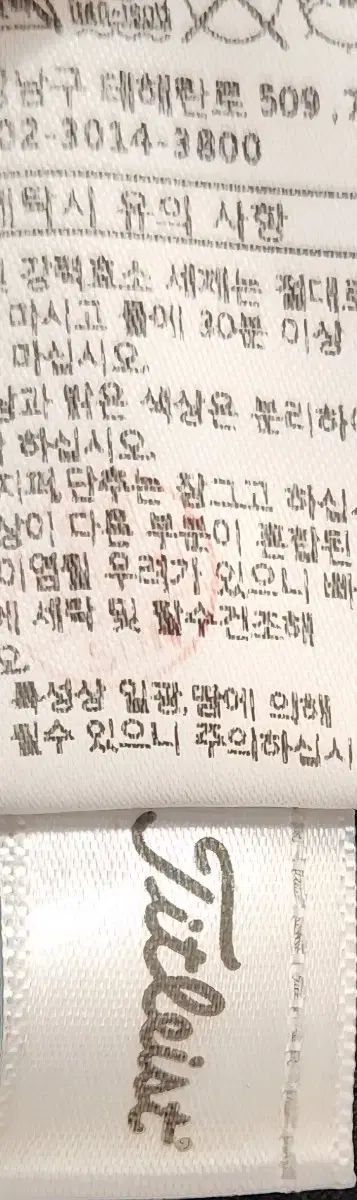 강남구 테헤란로 509, 7
02-3014-3800
세탁시 유의 사항
강력효소 세제는 절대로
마시고 물에 30분 이상
마십시오.
밝은 색상은 분리하여
하십시오.
지퍼,단추는 잠그고 하십시
상이 다른 부분이 혼합된
이염될 우려가 있으니 빠
세탁 및 탈수건조해
요.
특성상 일광,땀에 의해
될수 있으니 주의하십시
Titleist